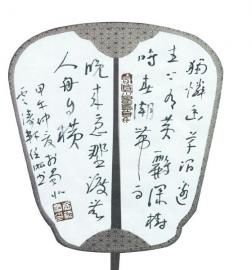 獨憐幽草澗邊
生上有黄鸝深樹
鳴春潮帶雨
晚来急野渡無
人舟自横
甲午仲夏